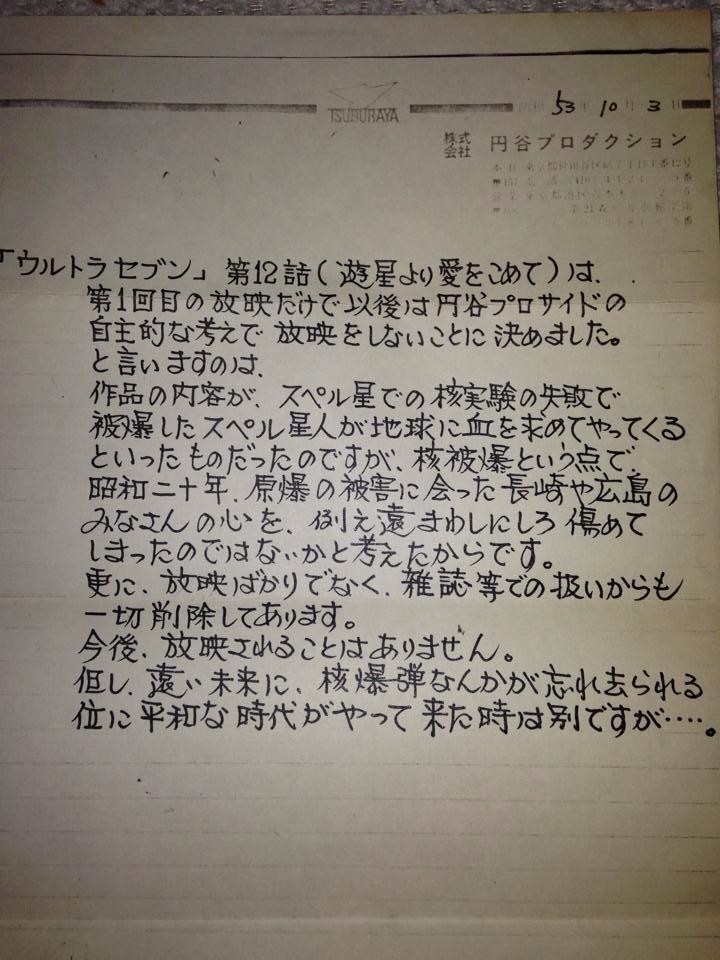 TSUBURAYA
昭和 53年 10月 3日
株式会社 円谷プロダクション
「ウルトラセブン」第12話(遊星より愛をこめて)は、
第1回目の放映だけで以後は円谷プロサイドの
自主的な考えで放映をしないことに決めました。
と言いますのは、
作品の内容が、スペル星での核実験の失敗で
被爆したスペル星人が地球に血を求めてやってくる
といったものだったのですが、核被爆という点で、
昭和二十年、原爆の被害に会った長崎や広島の
みなさんの心を、例え遠まわしにしろ傷めて
しまったのではないかと考えたからです。
更に、放映ばかりでなく、雑誌等での扱いからも
一切削除してあります。
今後、放映されることはありません。
但し、遠い未来に、核爆弾なんかが忘れ去られる
位に平和な時代がやって来た時は別ですが‥‥。